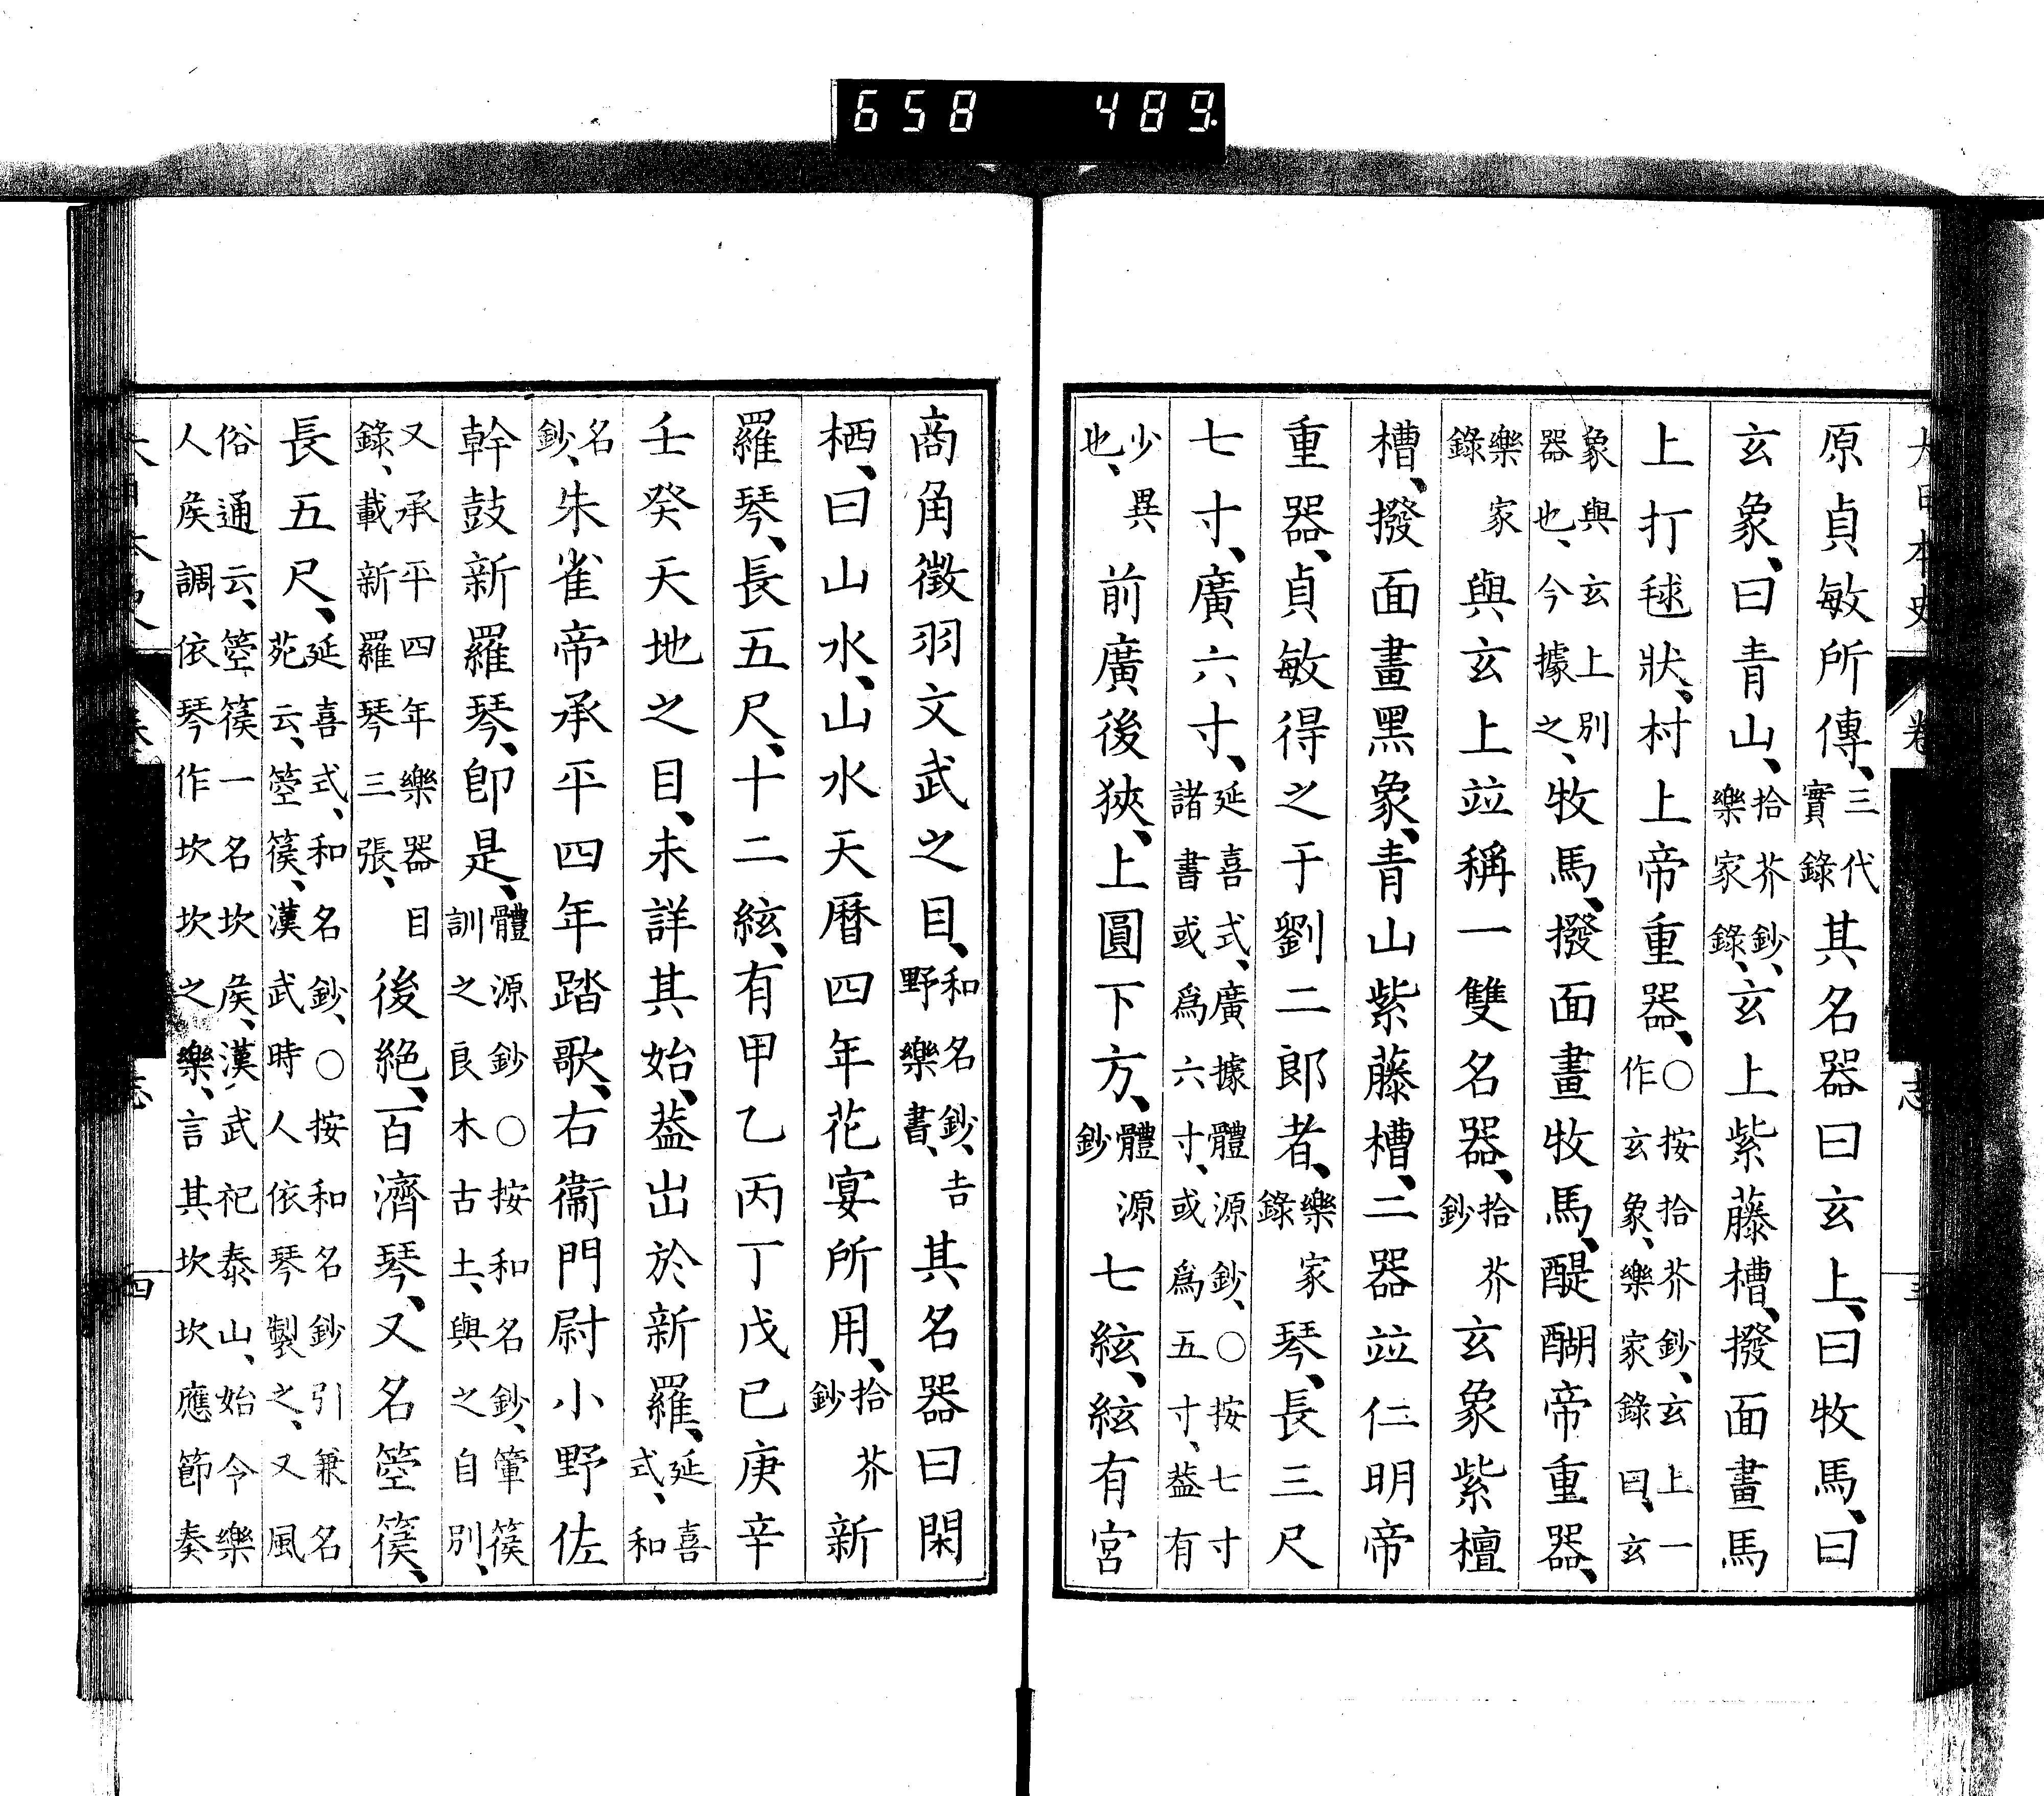 658 489
原貞敏所傳、三代實錄其名器曰玄上、曰牧馬、曰
玄象、曰青山、拾芥鈔、樂家錄、玄上紫藤槽、撥面畫馬
上打毬狀、村上帝重器、○按拾芥鈔、玄上一作玄象、樂家錄曰、玄
象與玄上別器也、今據之、牧馬、撥面畫牧馬、醍醐帝重器、
樂家錄與玄上竝稱一雙名器、拾芥鈔玄象紫檀
槽、撥面畫黑象、青山紫藤槽、二器竝仁明帝
重器、貞敏得之于劉二郎者、樂家錄琴、長三尺
七寸、廣六寸、延喜式、廣據體源鈔、○按七寸諸書或爲六寸、或爲五寸、葢有
少異也、前廣後狹、上圓下方、體源鈔七絃、絃有宮
商角徵羽文武之目、和名鈔、吉野樂書、其名器曰閑
栖、曰山水、山水天曆四年花宴所用、拾芥鈔新
羅琴、長五尺、十二絃、有甲乙丙丁戊己庚辛
壬癸天地之目、未詳其始、葢出於新羅、延喜式、和
名鈔、朱雀帝承平四年踏歌、右衞門尉小野佐
幹鼓新羅琴、卽是、體源鈔○按和名鈔、箜篌訓之良木古土、與之自別、
又承平四年樂器目錄、載新羅琴三張、後絕、百濟琴、又名箜篌、
長五尺、延喜式、和名鈔、○按和名鈔引兼名苑云、箜篌、漢武時人依琴製之、又風
俗通云、箜篌一名坎侯、漢武祀泰山、始令樂人侯調依琴作坎坎之樂、言其坎坎應節奏